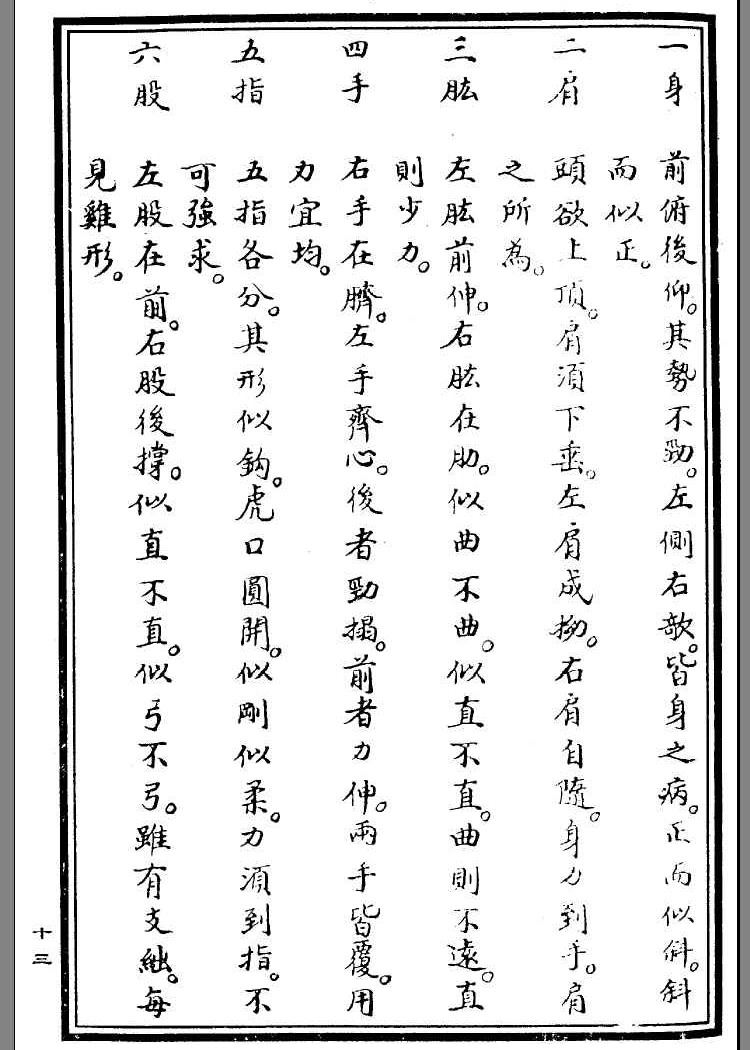 一身 前俯後仰。其勢不勁。左側右欹。皆身之病。正而似斜。斜
而似正。
二肩 頭欲上頂。肩須下垂。左肩成拗。右肩自隨。身力到手。肩
之所為。
三肱 左肱前伸。右肱在肋。似曲不曲。似直不直。曲則不遠。直
則少力。
四手 右手在臍。左手齊心。後者勁搨。前者力伸。兩手皆覆。用
力宜均。
五指 五指各分。其形似鈎。虎口圓開。似剛似柔。力須到指。不
可強求。
六股 左股在前。右股後撐。似直不直。似弓不弓。雖有支絀。每
見雞形。
十三